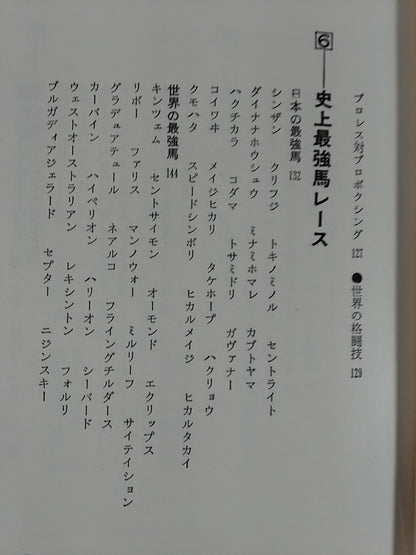 プロレス対プロボクシング 127 ●世界の格闘技 129
6──史上最強馬レース
日本の最強馬 132
シンザン クリフジ トキノミノル セントライト
ダイナナホウシュウ ミナミホマレ カブトヤマ
ハクチカラ コダマ トサミドリ ガヴァナー
コイワヰ メイジヒカリ タケホープ ハクリョウ
クモハタ スピードシンボリ ヒカルメイジ ヒカルタカイ
世界の最強馬 144
キンツェム セントサイモン オーモンド エクリップス
リボー ファリス マンノウォー ミルリーフ サイテイション
グラデュアテュール ネアルコ フライングチルダース
カーバイン ハイペリオン ハリーオン シーバード
ウェストオーストラリアン レキシントン フォルリ
ブルガディアジェラード セプター ニジンスキー